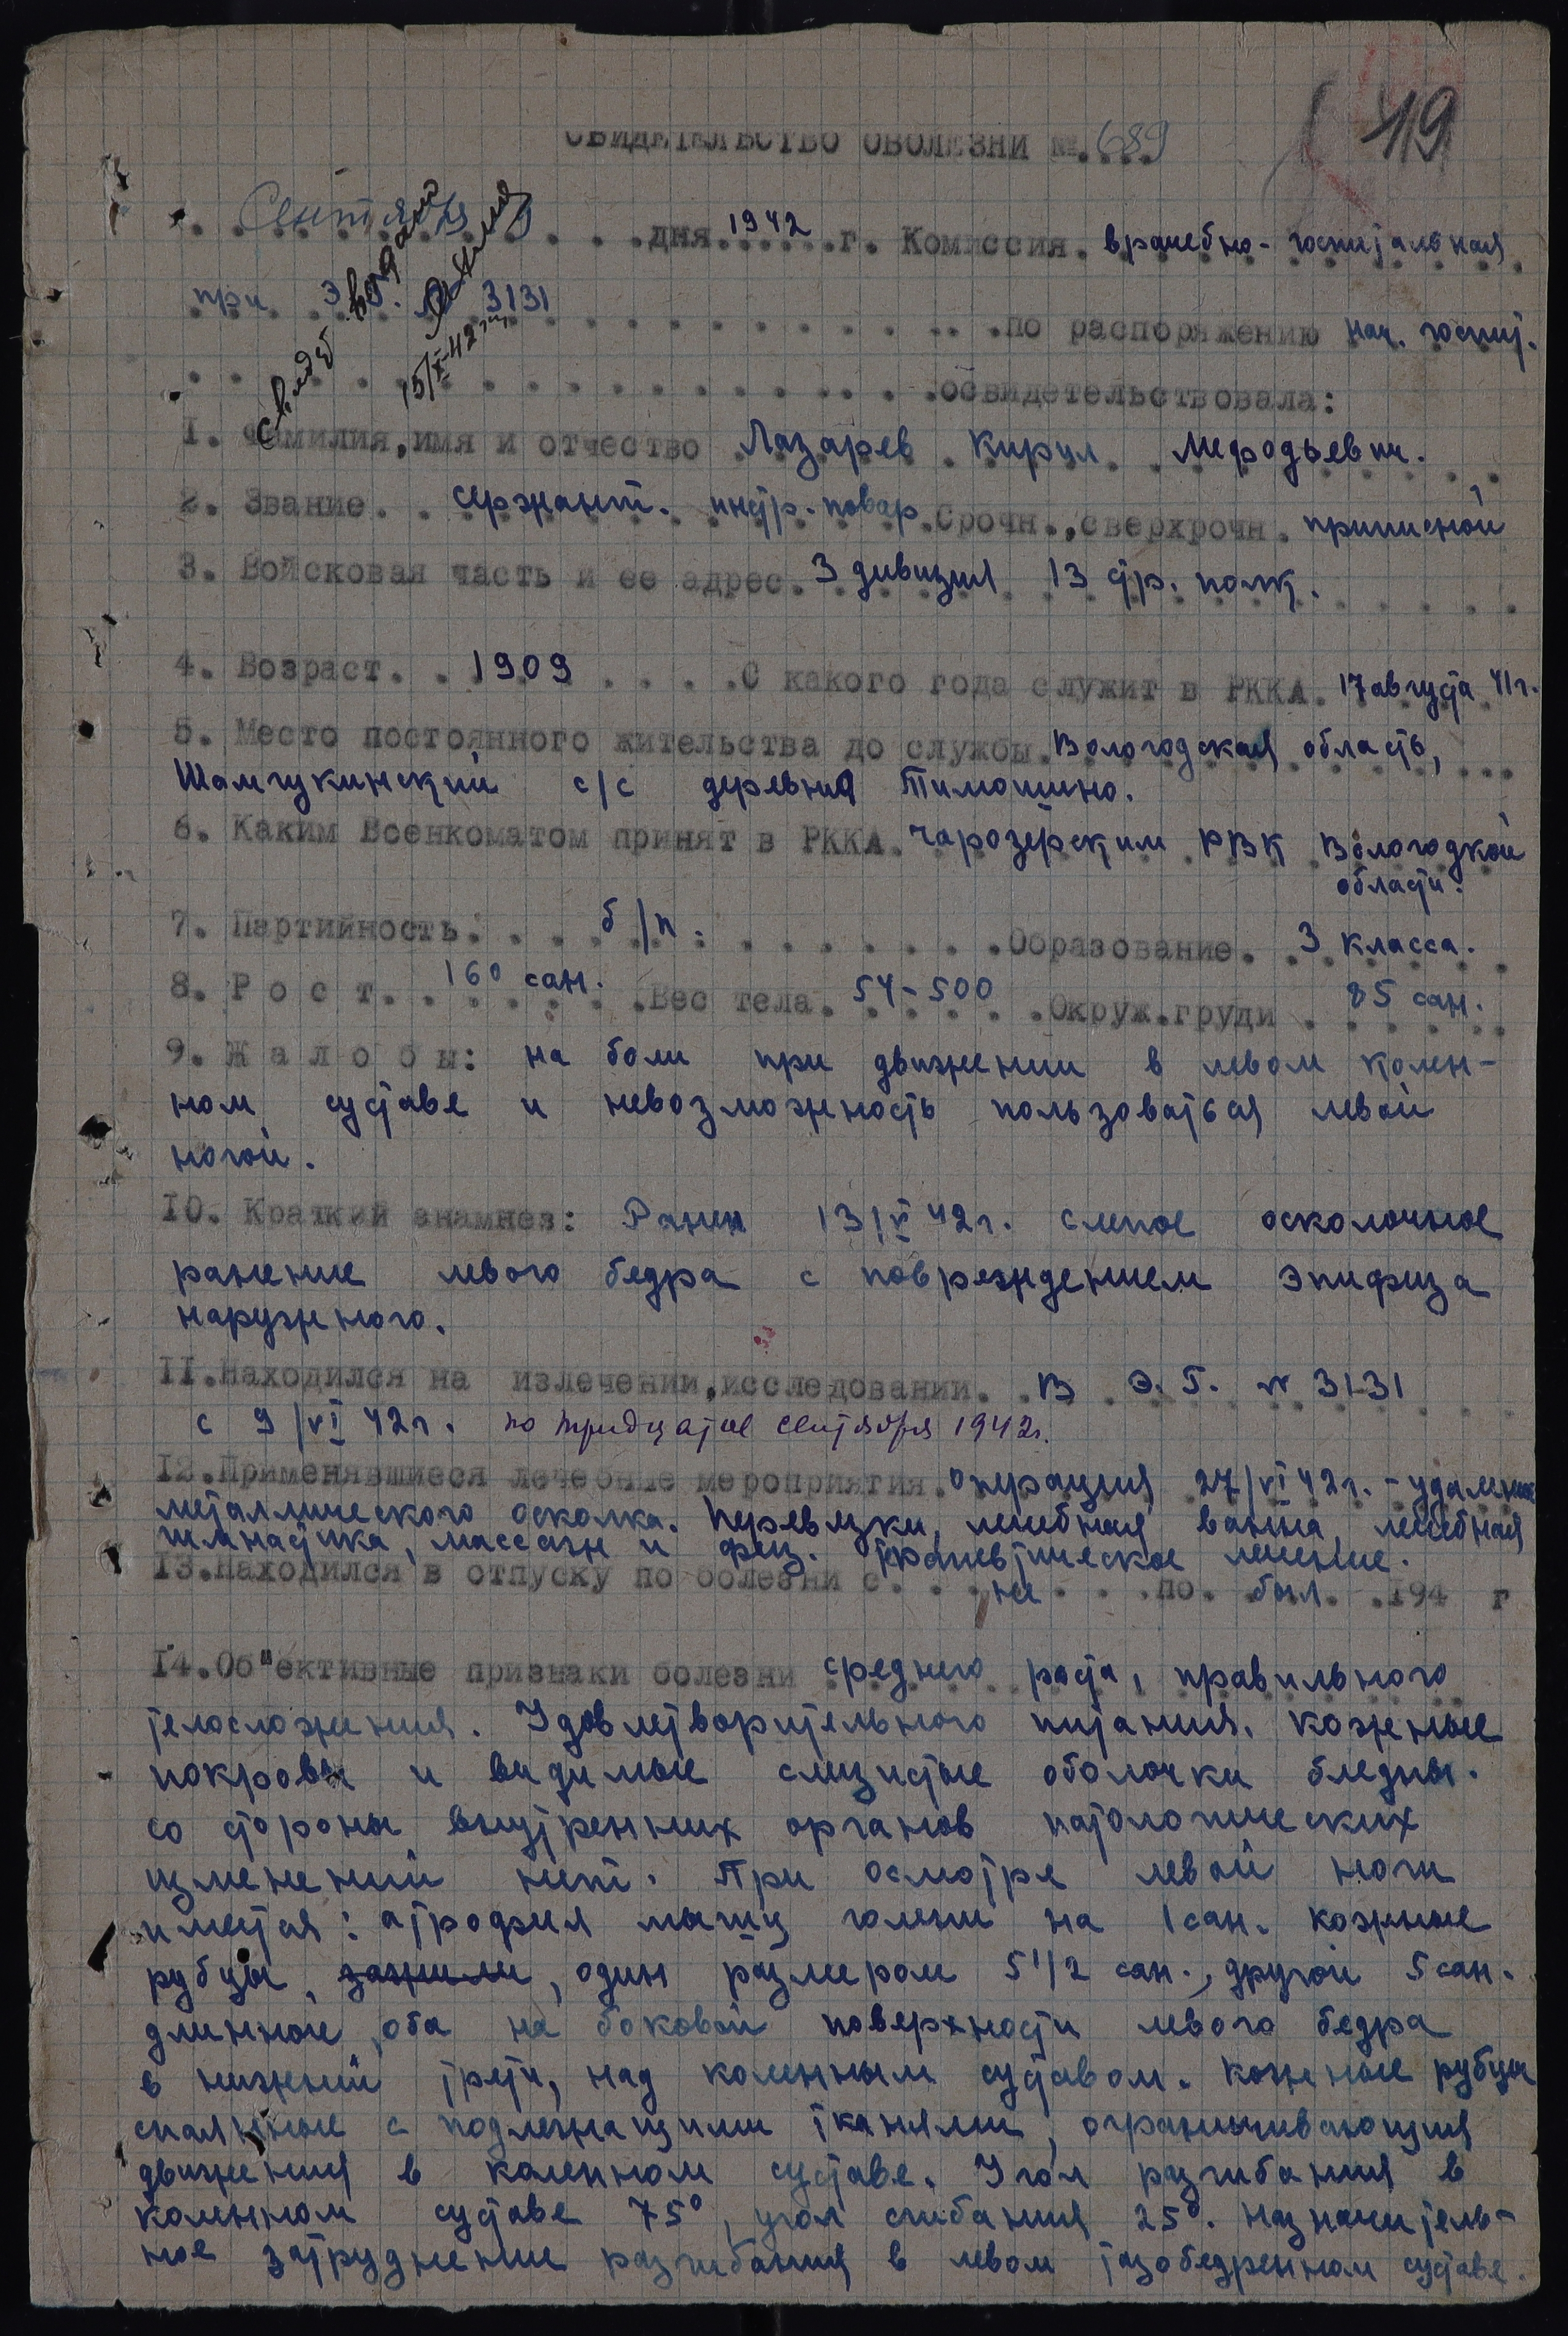 49
СВИДЕТЕЛЬСТВО О БОЛЕЗНИ №. 689
Сентября дня 1942 г. Комиссия врачебно-госпитальная
при Э.Г. № 3131 по распоряжению нач. госпит.
освидетельствовала:
свидет. выдано
15/X-42 г.
1. Фамилия, имя и отчество Лазарев Кирил Мефодьевич.
2. Звание. сержант. инстр. повар Срочн., сверхсрочн. приписной
3. Войсковая часть и ее адрес. 3 дивизия 13 стр. полк.
4. Возраст. 1909 С какого года служит в РККА. 17 августа 41 г.
5. Место постоянного жительства до службы. Вологодская область,
Шамгукинский с/с деревня Тимошино.
6. Каким Военкоматом принят в РККА. Чарозерским РВК Вологодкой
области.
7. Партийность: б/п. Образование. 3 класса.
8. Р о с т. 160 сан. Вес тела. 54-500 Окруж. груди 85 сан.
9. Ж а л о б ы: на боли при движении в левом колен-
ном суставе и невозможность пользоваться левой
ногой.
10. Краткий анамнез: Ранен 13/V 42 г. слепое осколочное
ранение левого бедра с повреждением эпифиза
наружного.
11. Находился на излечении, исследовании. В Э.Г. № 3131
с 9/VI 42 г. по тридцатое сентября 1942 г.
12. Применявшиеся лечебные мероприятия. Операция 27/VI 42 г. - удаление
металлического осколка. Перевязки, лечебная ванна, лечебная
гимнастика, массаж и физ. терапевтическое лечение.
13. Находился в отпуску по болезни с. не по. был. 194 г
14. Об"ективные признаки болезни среднего роста, правильного
телосложения. Удовлетворительного питания. Кожные
покровы и видимые слизистые оболочки бледны.
Со стороны внутренних органов патологических
изменений нет. При осмотре левой ноги
имеется: атрофия мышц голени на 1 сан. кожные
рубцы, зажили, один размером 5 1/2 сан., другой 5 сан.
длинной, оба на боковой поверхности левого бедра
в нижней трети, над коленным суставом. Кожные рубцы
спаянные с подлежащими тканями, ограничивающия
движения в коленном суставе. Угол разгибания в
коленном суставе 75°, угол сгибания 25°. Незначитель-
ное затруднение разгибания в левом тазобедренном суставе.